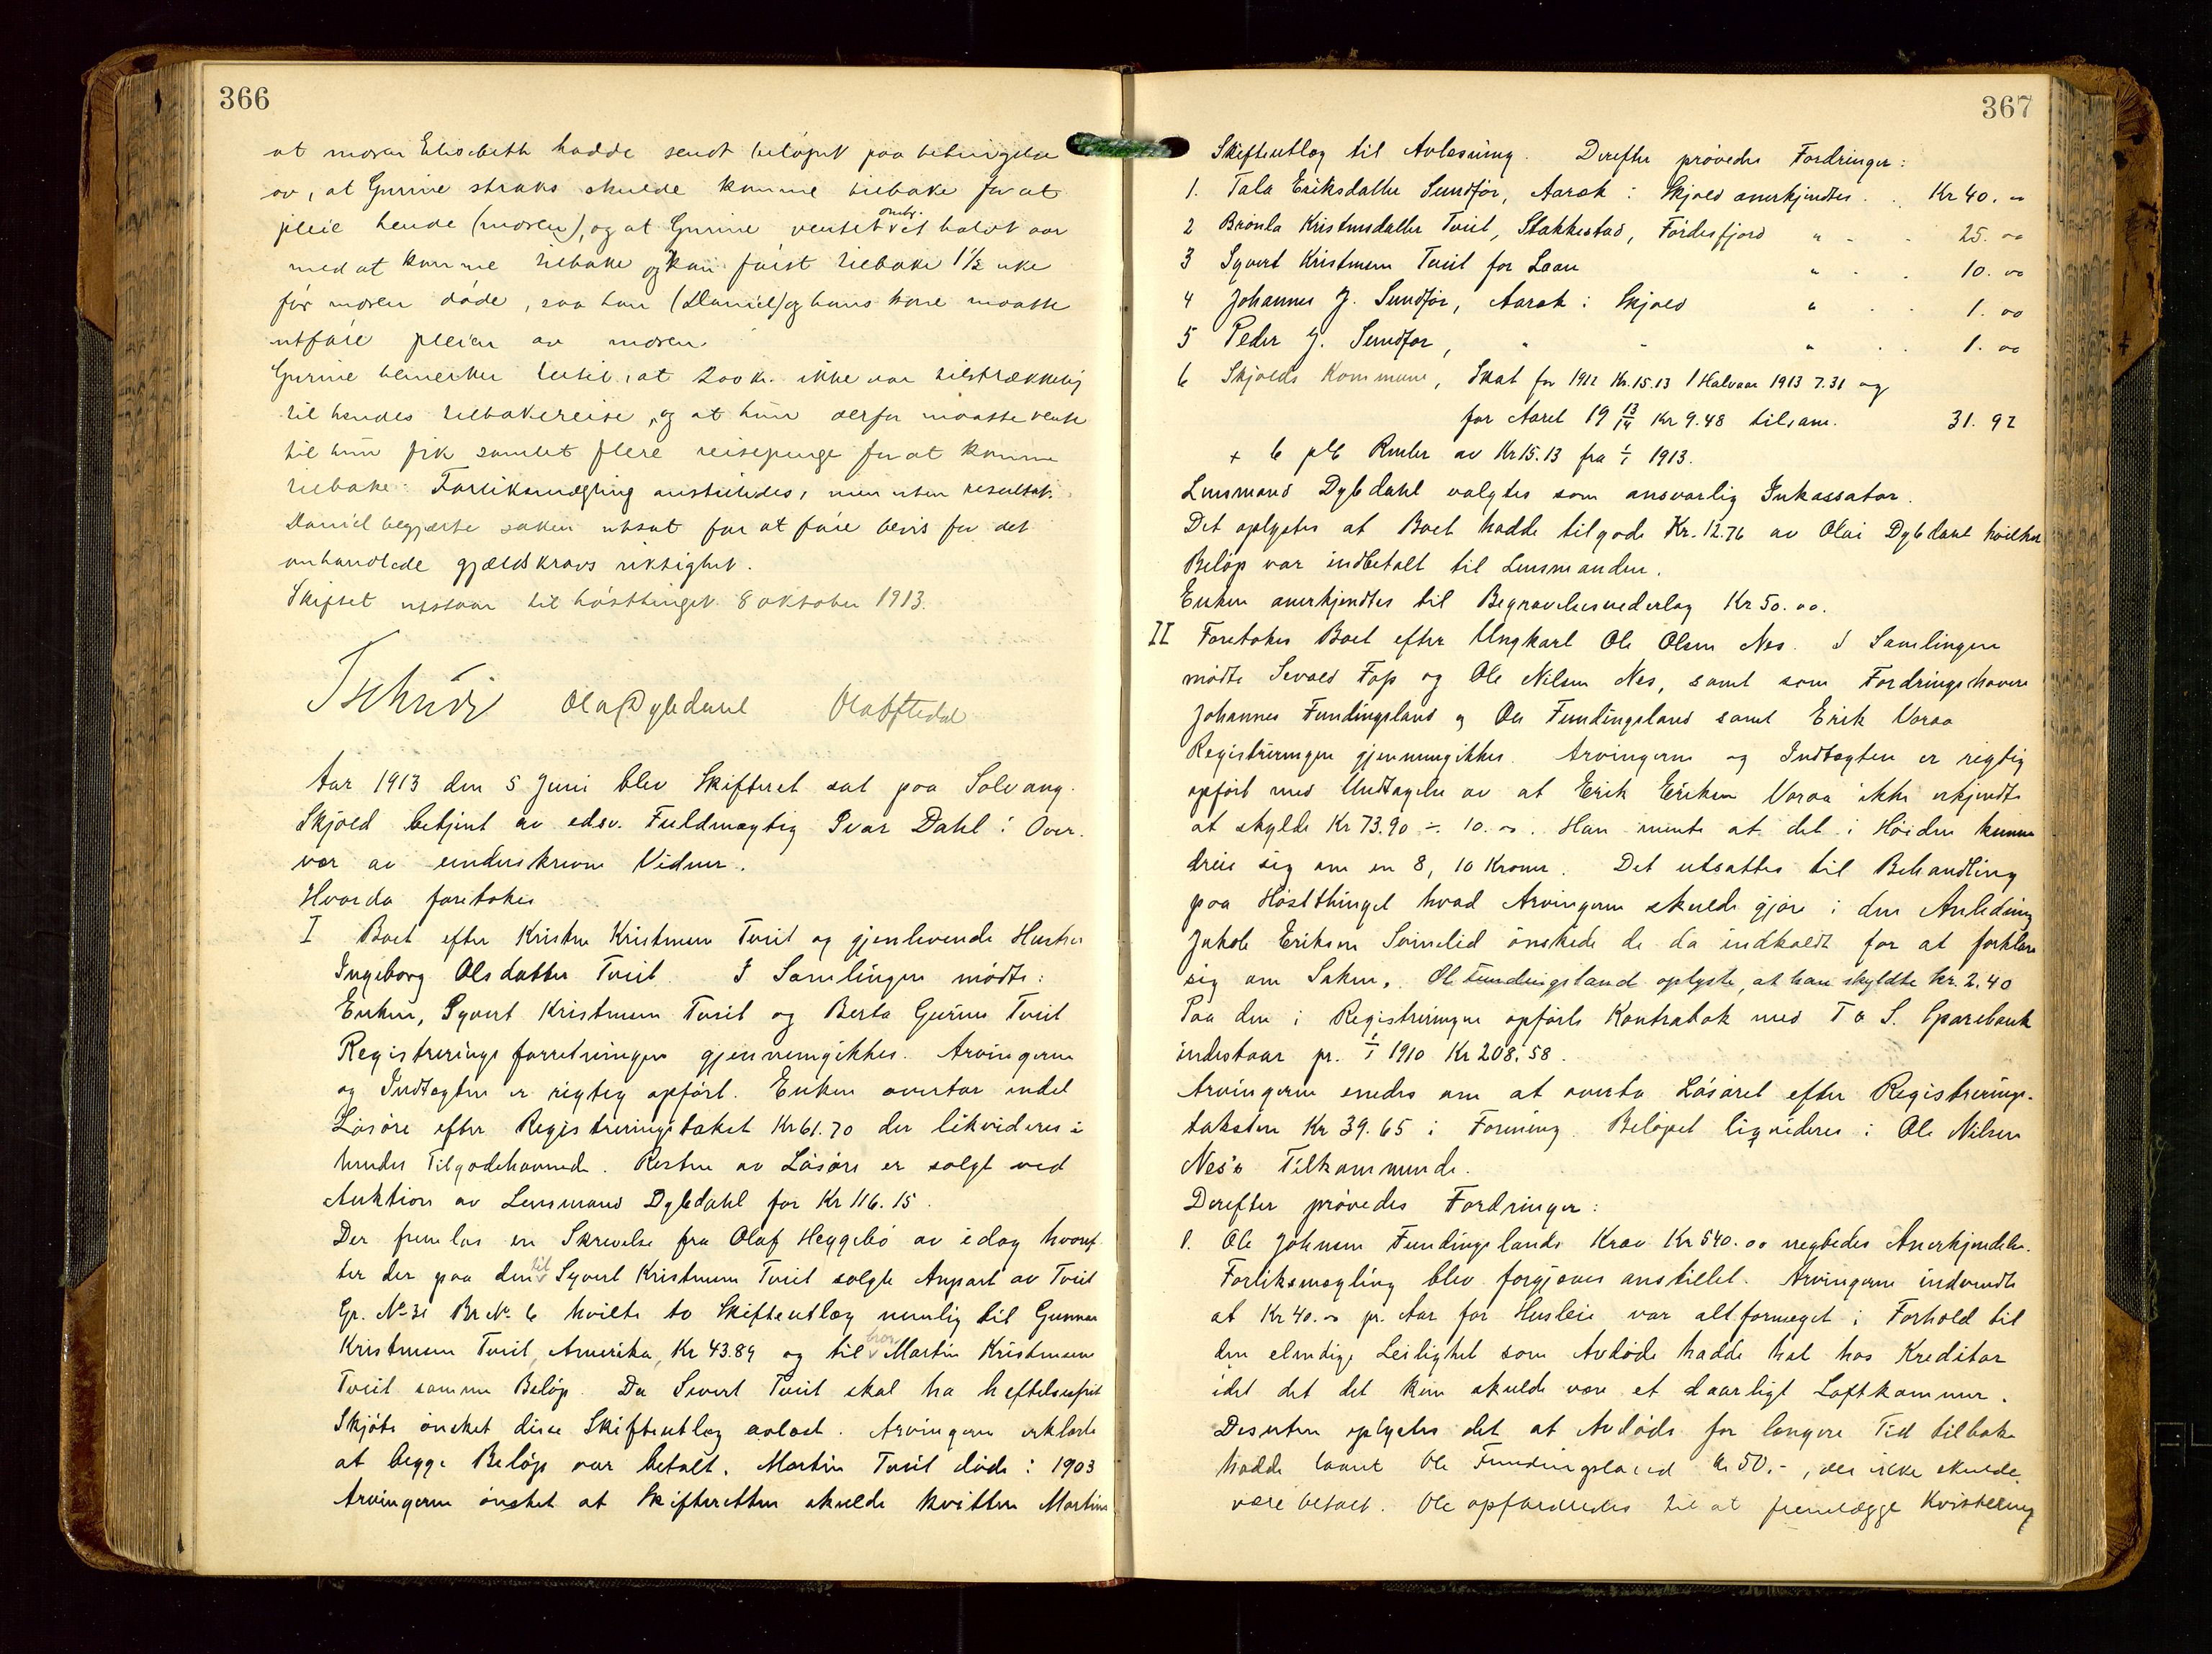 366
at moren Elisabeth hadde sendt beløpet paa betingelse
av, at Gurine straks skulde komme tilbake for at
pleie hende (moren), og at Gurine ventet omtr. et halvt aar
med at komme tilbake og kom først tilbake 1½ uke
før moren døde, saa han (Daniel) og hans kone maatte
utføre pleien av moren.
Gurine bemerker hertil, at 200 kr. ikke var tilstrækkelig
til hendes tilbakereise, og at hun derfor maatte vente
til hun fik samlet flere reisepenge for at komme
tilbake. Forliksmægling anstilledes, men uten resultat.
Daniel begjærte saken utsat for at føre bevis for det
omhandlede gjældskravs riktighet.
Skiftet utstaar til høsttinget 8 oktober 1913.
Tschudi Ola Dybdahl Ola Oftedal
Aar 1913 den 5 Juni blev Skifteret sat paa Solvang
Skjold betjent av edsv. Fuldmægtig Ivar Dahl i Over-
vær av unduskrevne Vidner.
Hvorda foretokes
I Boet efter Kristen Kristensen Tveit og gjenlevende Hustru
Ingeborg Olsdatter Tveit. I Samlingen mødte:
Enken, Syvert Kristensen Tveit og Berta Gurine Tveit
Registreringsforretningen gjennemgikkes. Arvingerne
og Indtægten er rigtig opført. Enken overtar endel
Løsøre efter Registreringstakst Kr 61.70 der likvideres i
hendes Tilgodehavende. Resten av Løsøre er solgt ved
Auktion av Lensmand Dybdahl for Kr 116.15.
Der fremlas en Skrivelse fra Olaf Heggebø av idag hvoref-
ter der paa den til Syvert Kristensen Tveit solgte Anpart av Tveit
Gr. No 31 Br No 6 hvilte to Skifteutlæg nemlig til Gunnar
Kristensen Tveit, Amerika, Kr 43.89 og til bror Martin Kristensen
Tveit samme Beløp. Da Sivert Tveit skal ha heftelsesfrit
Skjøte ønsket disse Skifteutlæg avløst. Arvingerne erklærte
at begge Beløp var betalt. Martin Tveit døde i 1903
Arvingerne ønsket at Skifteretten skulde kvittere Martins
367
Skifteutlæg til Avlæsning. Derefter prøvedes Fordringer:
1. Tala Eriksdatter Sundfør, Aarek i Skjold anerkjendtes . . Kr 40. 00
2 Brønla Kristensdatter Tveit, Stakkestad, Førdesfjord " - . 25. 00
3 Syvert Kristensen Tveit for Laan " . . 10. 00
4 Johannes J. Sundfør, Aarek i Skjold " . . 1. 00
5 Peder J. Sundfør, " - " . . 1. 00
6 Skjolds Kommune, Skat for 1912 Kr. 15.13 1 Halvaar 1913 7.31 og
for Aaret 19 13/14 Kr 9.48 tilsam. 31. 92
+ 6 pct Renter av Kr 15.13 fra 1/1 1913.
Lensmand Dybdahl valgtes som ansvarlig Inkassator.
Det oplystes at Boet hadde tilgode Kr. 12.76 av Olai Dybdahl hvilket
Beløp var indbetalt til Lensmanden.
Enken anerkjendtes til Begravelsesvederlag Kr 50.00.
II Foretokes Boet efter Ungkarl Ole Olsen Nes. I Samlingen
mødte Sevald Fop og Ole Nilsen Nes, samt som Fordringshavere
Johannes Fundingsland og Ole Fundingsland samt Erik Voraa
Registreringen gjennemgikkes. Arvingerne og Indtægten er rigtig
opført med Undtagelse av at Erik Eriksen Voraa ikke erkjendte
at skylde Kr 73.90 ÷ 10.00. Han mente at det i Høiden kunne
dreie sig om en 8, 10 Kroner. Det utsattes til Behandling
paa Høstthinget hvad Arvingerne skulde gjøre i den Anledning
Jakob Eriksen Soinelid ønskede de da indkaldt for at forklare
sig om Saken. Ole Fundingsland oplyste, at han skyldte kr. 2.40
Paa den i Registreringen opførte Kontrabok med T & S. Sparebank
indestaar pr. 1/1 1910 Kr 208.58.
Arvingerne enedes om at overta Løsøret efter Registrerings-
taksten Kr 39.65 i Forening. Beløpet liqvideres i Ole Nilsen
Nes's Tilkommende.
Derefter prøvedes Fordringer:
1. Ole Johnsen Fundingslands Krav Kr 540.00 negtedes Anerkjendelse.
Forliksmægling blev forgjæves anstillet. Arvingerne indvendte
at Kr 40.00 pr. Aar for Husleie var altformeget i Forhold til
den elendige Leilighet som Avdøde hadde hat hos Kreditor
idet det det kun skulde være et daarligt Loftkammer.
Desuten oplystes det at Avdøde for længere Tid tilbake
hadde laant Ole Fundingsland kr 50.-, der ikke skulde
være betalt. Ole opfordredes til at fremlægge Kvittering